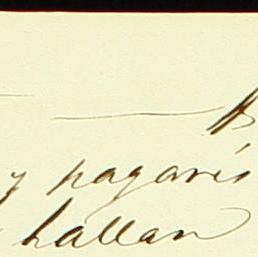 y pagarés
hallan